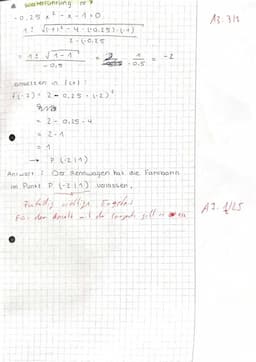 Weiterführung nr 7
A3: 3/3
-0,25 x² - x - 1 = 0
1 ± √(-1)² - 4 · (-0,25) · (-1)
2 · (-0,25
= 1 ± √1 - 1
- 0,5
= 1 / -0,5 = -2
einsetzen in f(x):
f(-2) = 2 - 0,25 · (-2)²
= 2 - 0,25 · 4
= 2 - 1
= 1
→ P (-2|1)
Antwort: Der Rennwagen hat die Fahrbahn
im Punkt P (-2|1) verlassen.
Zufällig richtiges Ergebnis
Für den mit der
A3.